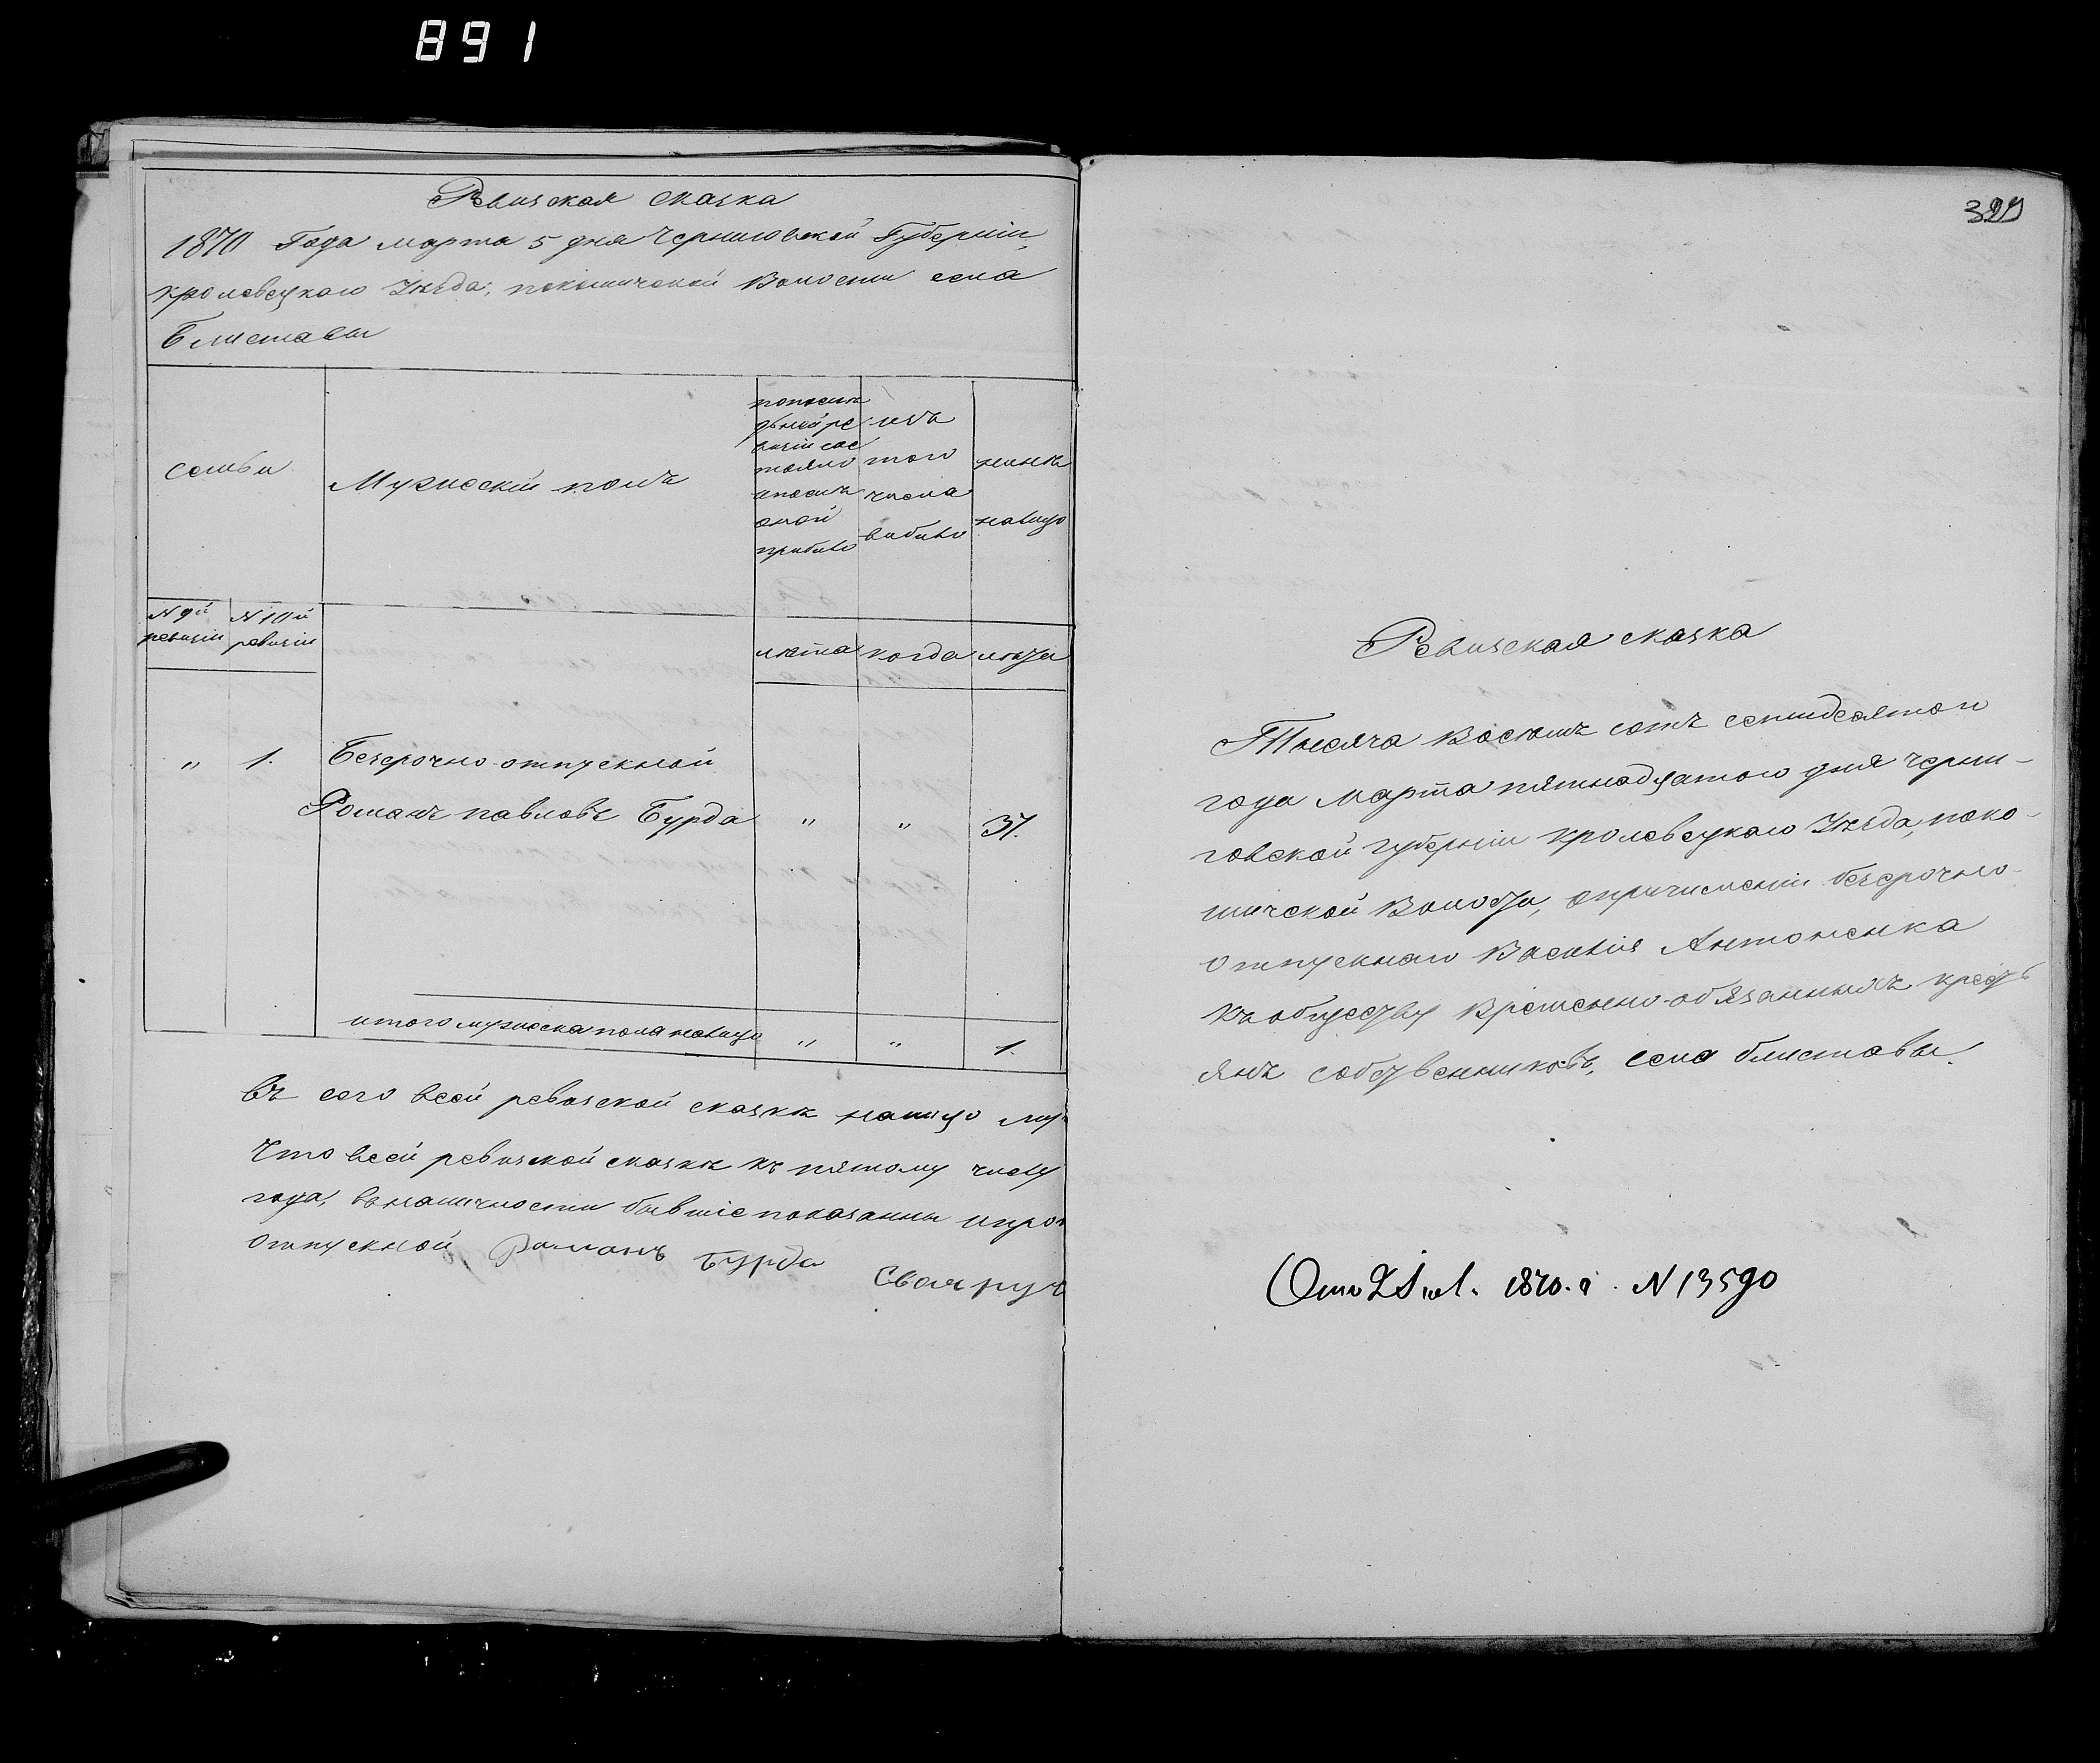 891
Ревизская сказка
1870 Года марта 5 дня Черниговской Губерніи,
кролевецкаго Уѣзда, покошичской Волости села
Блиставы
семьи
Мужескій полъ
попослѣ
дьней ре
визіи сос
тояло
ипослѣ
оной
прибыло
изъ
того
числа
выбыло
нынѣ
налицо
N 9й ревизіи
N 10й ревизіи
лѣта
когда
лѣта
" 1. Безсрочно-отпускной
Романъ павловъ Бурда " " 37.
итого мужеска пола налицо " " 1.
Въ сего всей ревизской сказкѣ налицо му
Что всей ревизской сказкѣ къ пятому числу
года, въ наличности бывшіе показанны ипро
отпускной Романъ Бурда
Своеруч
329
Ревизская сказка
Тысяча Восемъ сотъ семидесятого
года Марта пятнадцатого дня черни-
говской губерніи кролевецкаго Уѣзда, поко-
шичской Волости, опричисленіи безсрочно-
отпускнаго Василія Антоненка
къ обществу Временно-обязанныхъ крест
янъ собственниковъ, села блиставы.
1870. N 13590